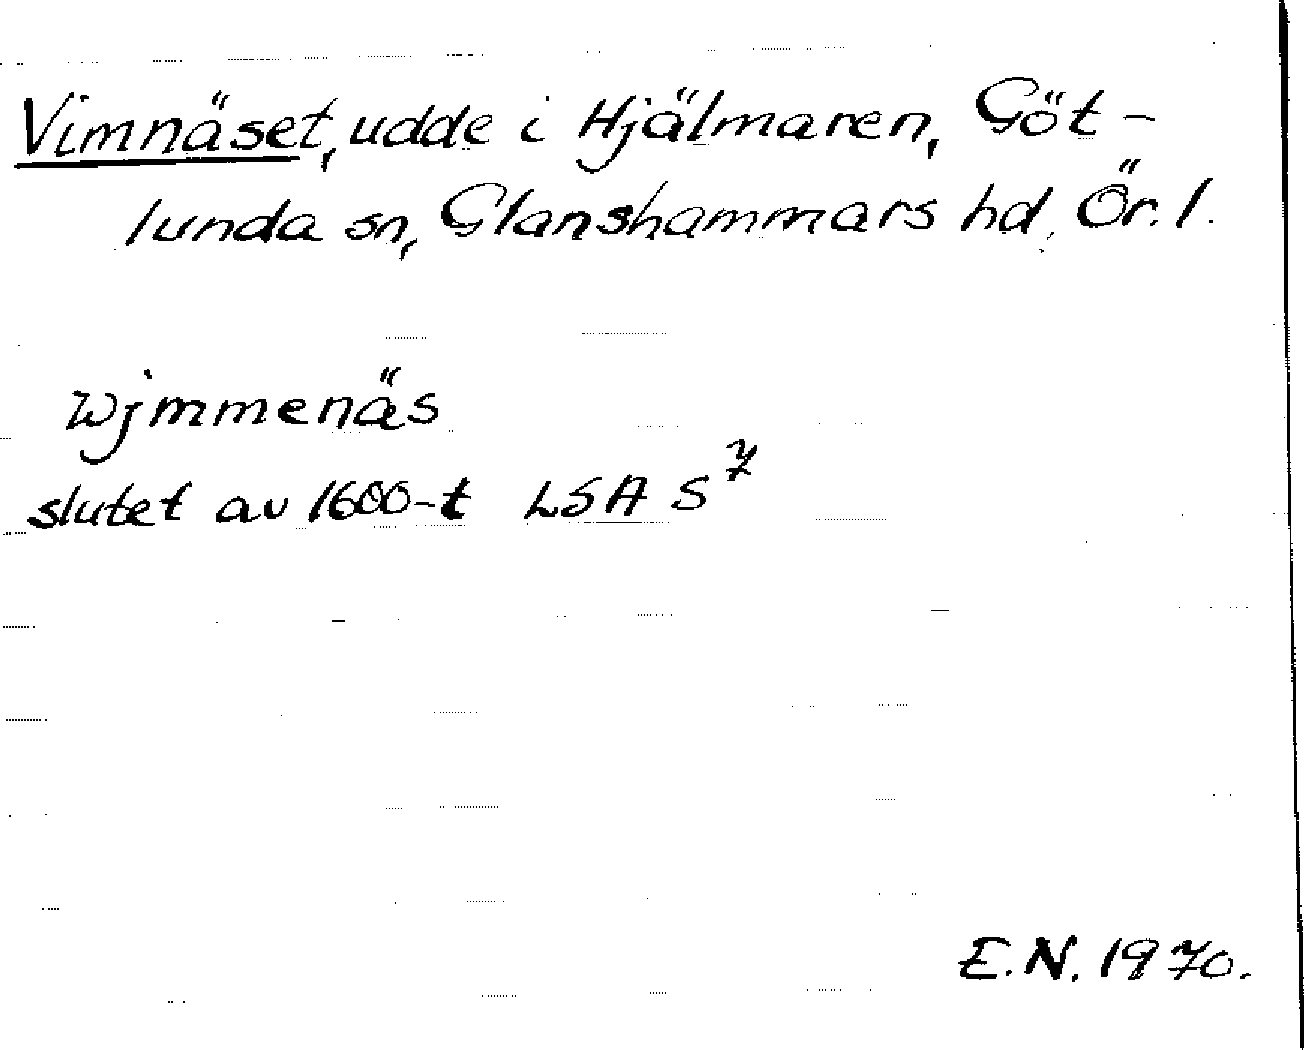 Vimnäset, udde i Hjälmaren, Göt-
lunda sn, Glanshammars hd, Ör. l.
Wjmmenäs
slutet av 1600-t LSA S⁷
E.N. 1970.